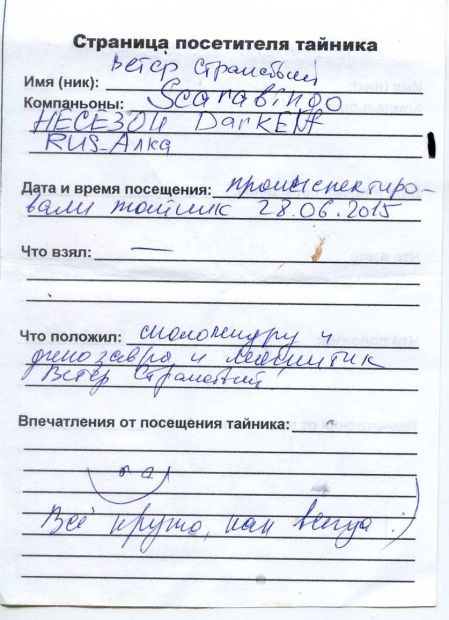 Страница посетителя тайника
Ветер Странствий
Имя (ник): Scarabingo
Компаньоны:
НЕСЕЗОН DarkElf
RUS-Алка
Дата и время посещения: проинспектиро-
вали тайник 28.06.2015
Что взял: —
Что положил: саламандру и
динозавра и магнитик
Ветер Странствий
Впечатления от посещения тайника:
Всё круто, как всегда :)